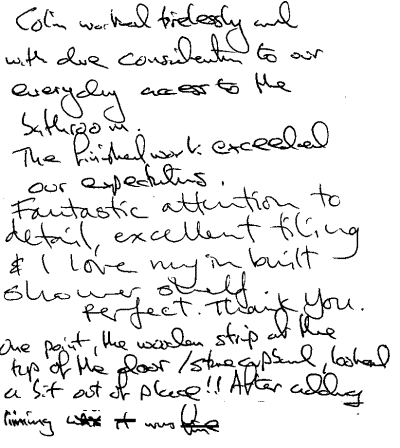 Colin worked tirelessly and
with due consideration to our
everyday access to the
bathroom.
The finished work exceeded
our expectations.
Fantastic attention to
detail, excellent tiling
& I love my in built
shower shelf
perfect. Thank You.
One point, the wooden strip at the
top of the door / looked
a bit out of place!! After adding
it was fine